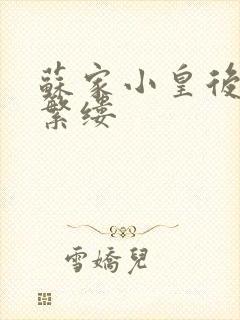 蘇家小皇後
繁縷
雪嬌兒